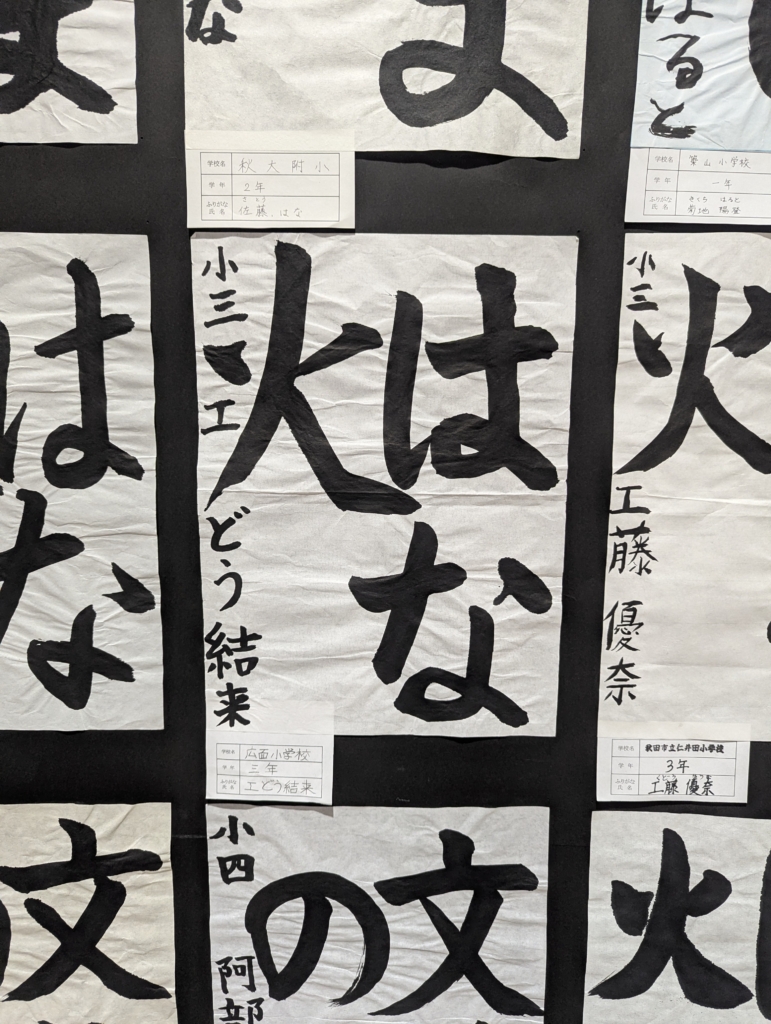 な
はると
学校名 秋大附小
学年 2年
ふりがな さとう
氏名 佐藤 はな
学校名 築山小学校
学年 一年
ふりがな きくち はると
氏名 菊地
はな
はな
火
小三 工どう結来
火
小三 工藤 優奈
学校名 広面小学校
学年 三年
ふりがな
氏名 工どう結来
学校名 秋田市立仁井田小学校
学年 3年
ふりがな くどう ゆうな
氏名 工藤 優奈
文
の
文
の
小四 阿部
火